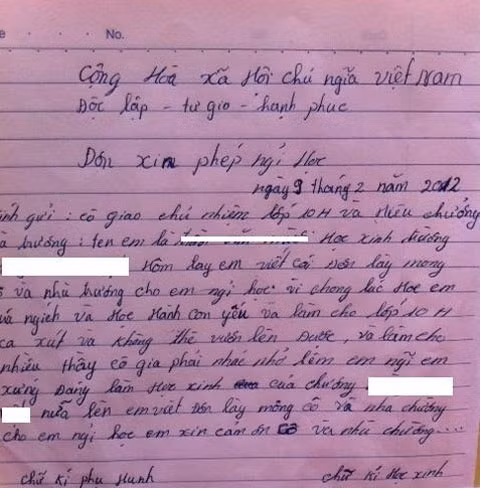 e No.
Cộng Hoà xã Hôi chủ ngĩa việt Nam
Dôc lập - tư gio - hạnh phuc
Dơn xin phép ngỉ Học
ngày 9 tháng 2 năm 2012
ính gửi : cô giao chủ nhiệm lớp 10 H và Hiêu chưởng
à trường : ten em là Học xinh đường
Hôm lay em viết cái Dơn lây mong
và nhà trường cho em ngỉ học vì chong lúc Hoc em
và ngịch và Học Hành con yếu và làm cho lớp 10 H
ca xút và không thể vươn lên Dươc, và làm cho
nhiều thầy cô gia phải nhác nhở lêm em ngĩ em
xưng Dáng làm Học xinh của chường
nữa lên em viết Dơn lay mông cô và nha chường
cho em ngỉ học em xin cám ơn cô và nhà chường....
chữ kí phụ Hunh chữ kí Học xinh